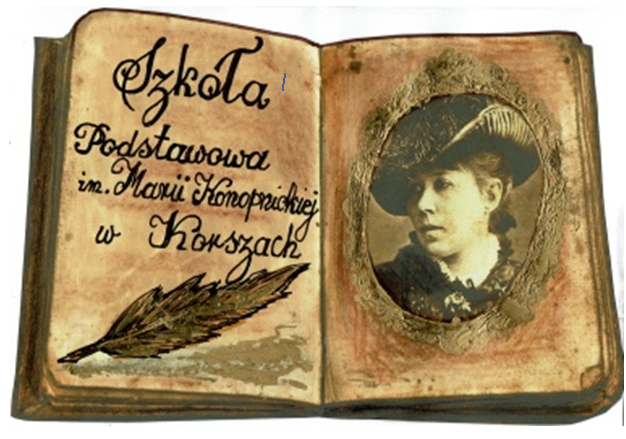 Szkoła
Podstawowa
im. Marii Konopnickiej
w Korszach